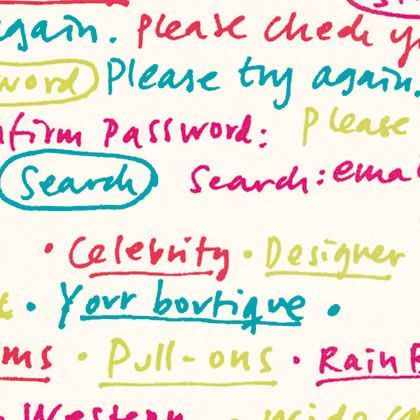 again. Please check y
word Please try again.
nfirm Password: Please
Search Search: ema
• Celebrity • Designer
t • Your boutique •
ms • Pull-ons • Rain B
Western